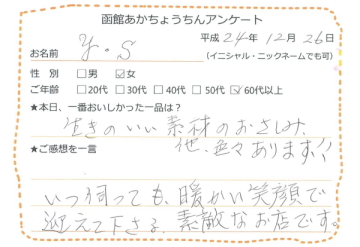 函館あかちょうちんアンケート
平成 24年 12月 26日
お名前 y・S (イニシャル・ニックネームでも可)
性 別 □男 ☑女
ご年齢 □20代 □30代 □40代 □50代 ☑60代以上
★本日、一番おいしかった一品は？
生きのいい素材のおさしみ
他、色々あります!!
★ご感想を一言
いつ伺っても、暖かい笑顔で
迎えて下さる、素敵なお店です。